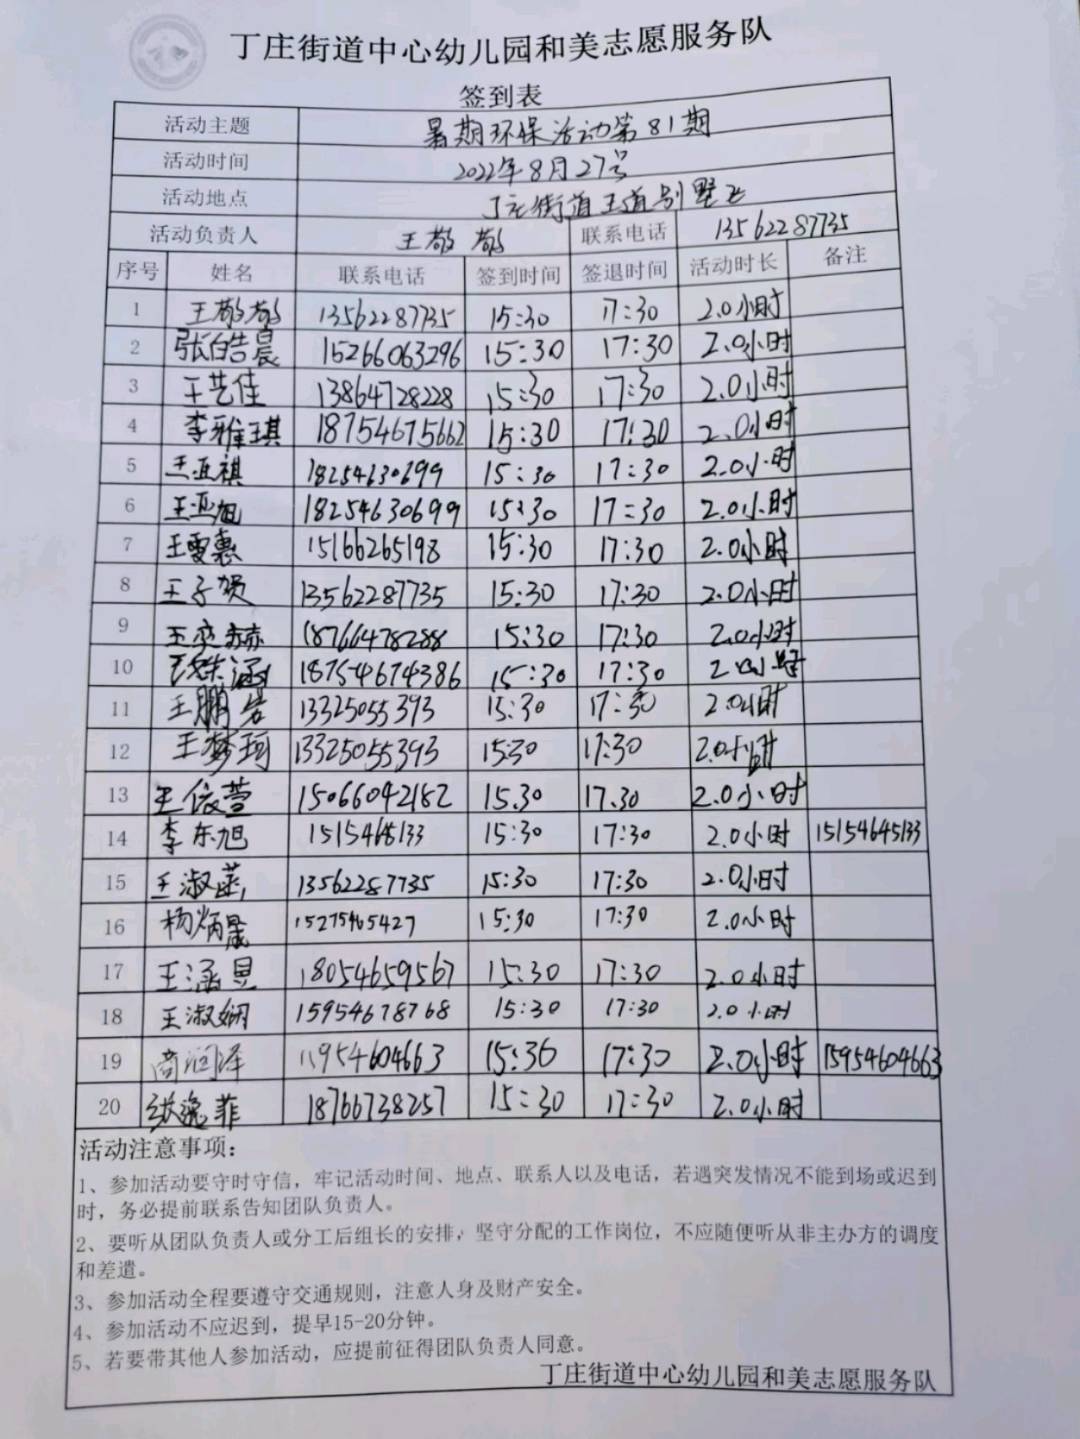 丁庄街道中心幼儿园和美志愿服务队
签到表
活动主题 暑期环保活动第81期
活动时间 2022年8月27号
活动地点 丁庄街道王道别墅区
活动负责人 王敬敬 联系电话 13562287735
序号 姓名 联系电话 签到时间 签退时间 活动时长 备注
1 王敬敬 13562287735 15:30 17:30 2.0小时
2 张皓晨 15266063296 15:30 17:30 2.0小时
3 王艺佳 13864728228 15:30 17:30 2.0小时
4 李雅琪 18754675662 15:30 17:30 2.0小时
5 王亚祺 18254630699 15:30 17:30 2.0小时
6 王亚旭 18254630699 15:30 17:30 2.0小时
7 王雯惠 15166265198 15:30 17:30 2.0小时
8 王子贺 13562287735 15:30 17:30 2.0小时
9 王奕赫 18766478288 15:30 17:30 2.0小时
10 涵 18754674386 15:30 17:30
11 王鹏 13325055393 15:30 17:30 2.0小时
12 王梦珂 13325055393 15:30 17:30 2.0小时
13 王依萱 15066042182 15.30 17.30 2.0小时
14 李东旭 1515468133 15:30 17:30 2.0小时 15154645133
15 王淑菡 13562287735 15:30 17:30 2.0小时
16 杨炳晟 15275465427 15:30 17:30 2.0小时
17 王涵 18054659567 15:30 17:30 2.0小时
18 王淑娴 15954678768 15:30 17:30 2.0小时
19 商润泽 11954604663 15:30 17:30 2.0小时 15954604663
20 逸菲 18766738257 15:30 17:30 2.0小时
活动注意事项:
1、参加活动要守时守信，牢记活动时间、地点、联系人以及电话，若遇突发情况不能到场或迟到
时，务必提前联系告知团队负责人。
2、要听从团队负责人或分工后组长的安排，坚守分配的工作岗位，不应随便听从非主办方的调度
和差遣。
3、参加活动全程要遵守交通规则，注意人身及财产安全。
4、参加活动不应迟到，提早15-20分钟。
5、若要带其他人参加活动，应提前征得团队负责人同意。
丁庄街道中心幼儿园和美志愿服务队